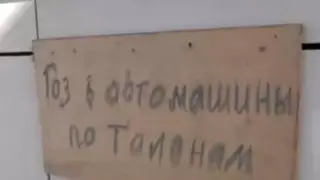 Газ в автомашины
по Талонам